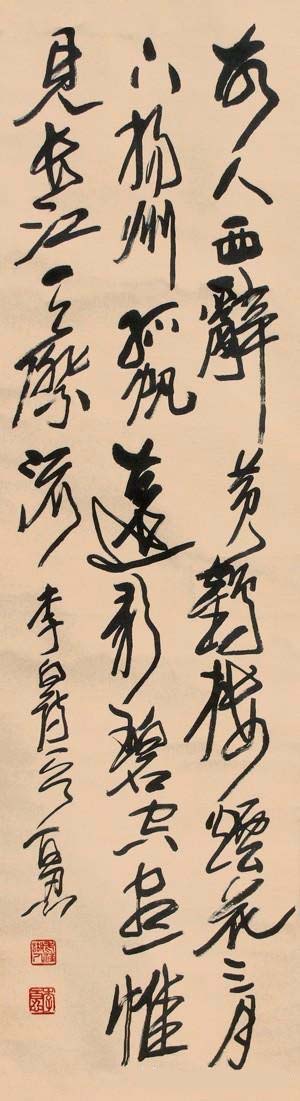 故人西辭黃鶴樓煙花三月
下揚州孤帆遠影碧空盡惟
見長江天際流
李白詩一首